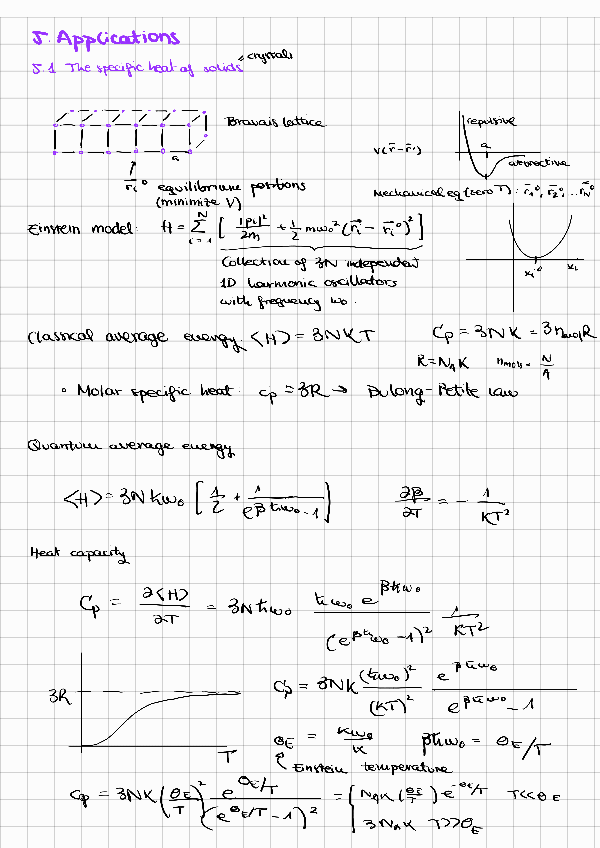 5. Applications
= crystals
5.1 The specific heat of solids
Bravais lattice
repulsive
V(r⃗-r⃗')
a
attractive
a
r⃗i⁰ equilibrium positions
(minimize V)
Mechanical eq (zero T): r⃗1⁰, r⃗2⁰, ... r⃗N⁰
Einstein model: H = Σ_{i=1}^{N} [ |pi|²/2m + 1/2 mω0² (r⃗i - r⃗i⁰)² ]
Collection of 3N independent
1D harmonic oscillators
with frequency ω0.
xi⁰ xi
Classical average energy <H> = 3NKT Cp = 3NK = 3nmolR
R = NAK nmols = N/A
• Molar specific heat: cp = 3R → Dulong-Petite law
Quantum average energy
<H> = 3Nħω0 [ 1/2 + 1/(e^{βħω0} - 1) ] ∂β/∂T = - 1/KT²
Heat capacity
Cp = ∂<H>/∂T = 3Nħω0 ħω0 e^{βħω0}/(e^{βħω0} - 1)² 1/KT²
3R
T
Cp = 3NK (ħω0)²/(KT)² e^{βħω0}/e^{βħω0} - 1
θE = ħω0/K βħω0 = θE/T
Einstein temperature
Cp = 3NK (θE/T)² e^{θE/T}/(e^{θE/T} - 1)² = { NAK (θE/T) e^{-θE/T} T<<θE
3NAK T>>θE